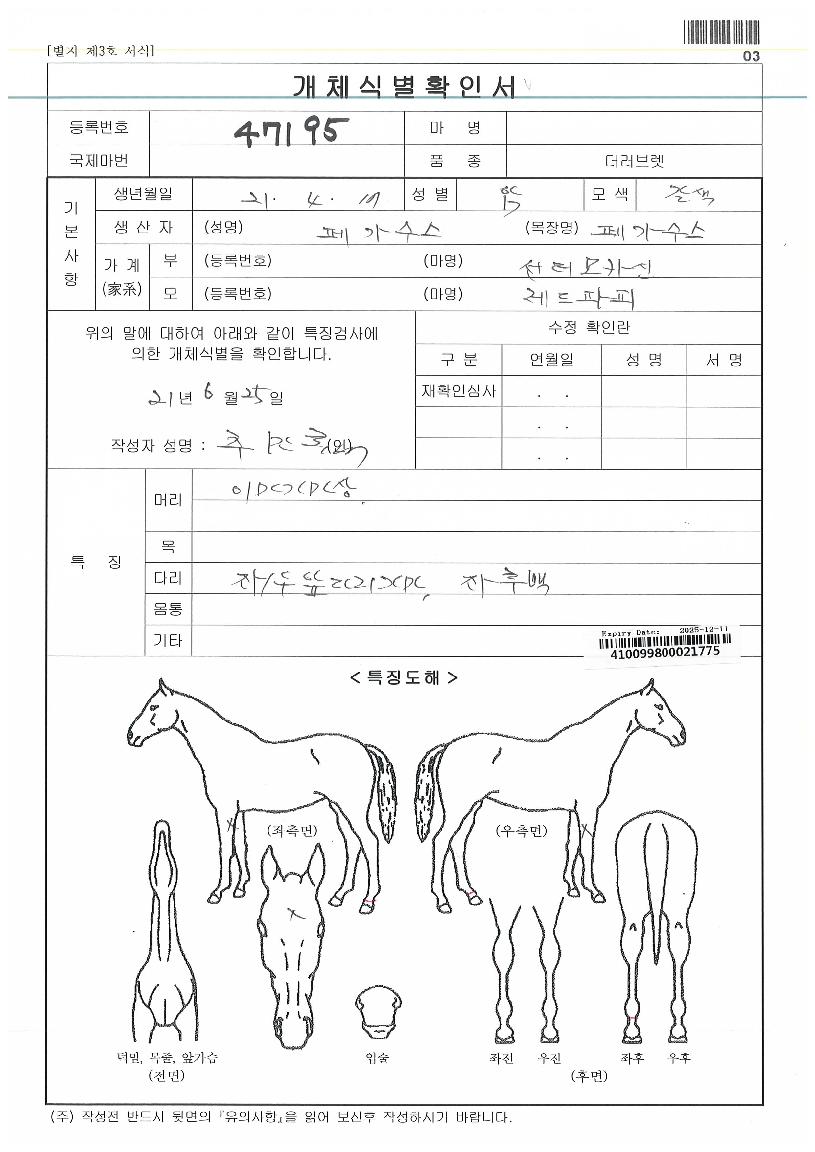 [별지 제3호 서식]
03
개체식별확인서
등록번호 47195 마 명
국제마번 품 종 더러브렛
기본사항
생년월일 21. 4. 17 성별 암 모색 갈색
생산자 (성명) 페가수스 (목장명) 페가수스
가계 (家系) 부 (등록번호) (마명) 선더모카신
모 (등록번호) (마명) 레드파피
위의 말에 대하여 아래와 같이 특징검사에
의한 개체식별을 확인합니다.
21년 6월 25일
작성자 성명 : (인)
수정 확인란
구분 연월일 성명 서명
재확인심사 . .
. .
. .
특징
머리
목
다리 좌후백
몸통
기타
Expiry Date: 2025-12-11
410099800021775
< 특징도해 >
(좌측면) (우측면)
더밑, 목줄, 앞가슴 입술 좌전 우전 좌후 우후
(전면) (후면)
(주) 작성전 반드시 뒷면의 『유의사항』을 읽어 보신후 작성하시기 바랍니다.